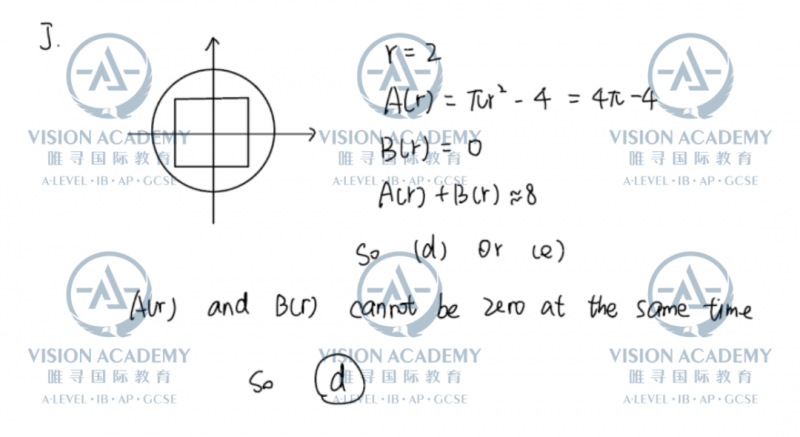 J.
r = 2
A(r) = πr² - 4 = 4π-4
B(r) = 0
A(r) + B(r) ≈ 8
So (d) or (e)
A(r) and B(r) cannot be zero at the same time
So d
VISION ACADEMY VISION ACADEMY VISION ACADEMY
唯寻国际教育 唯寻国际教育 唯寻国际教育
A-LEVEL·IB·AP·GCSE A-LEVEL·IB·AP·GCSE A-LEVEL·IB·AP·GCSE
VISION ACADEMY VISION ACADEMY VISION ACADEMY
唯寻国际教育 唯寻国际教育 唯寻国际教育
A-LEVEL·IB·AP·GCSE A-LEVEL·IB·AP·GCSE A-LEVEL·IB·AP·GCSE